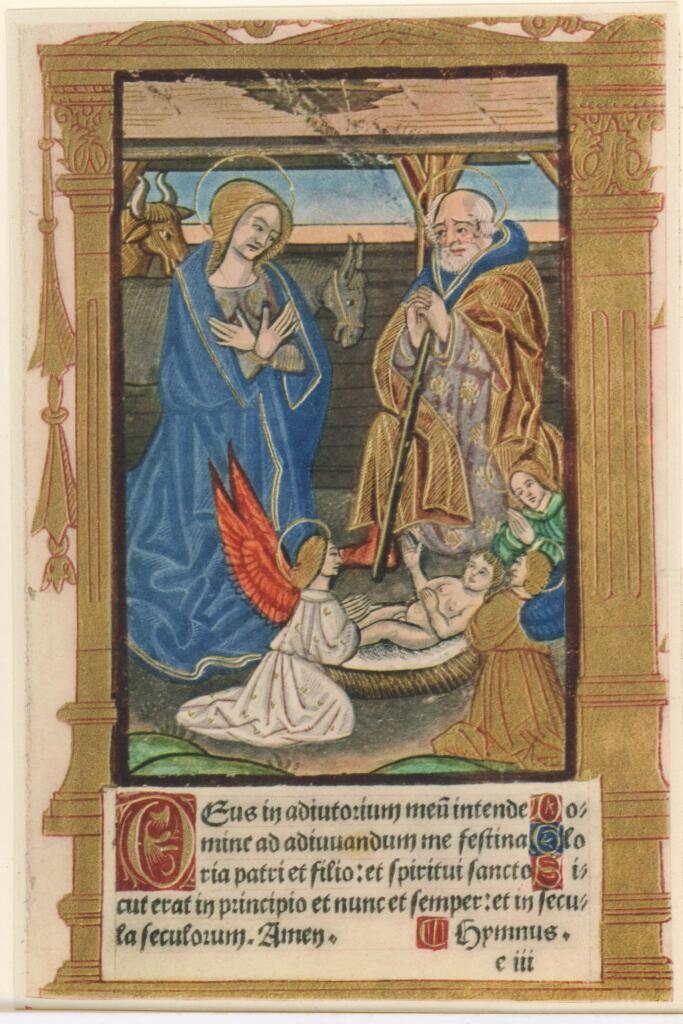 DEus in adiutorium meū intende Do⸗
mine ad adiuuandum me festina Glo
ria patri et filio: et spiritui sancto Si⸗
cut erat in principio et nunc et semper: et in secu⸗
la seculorum. Amen. Hymnus.
e iii